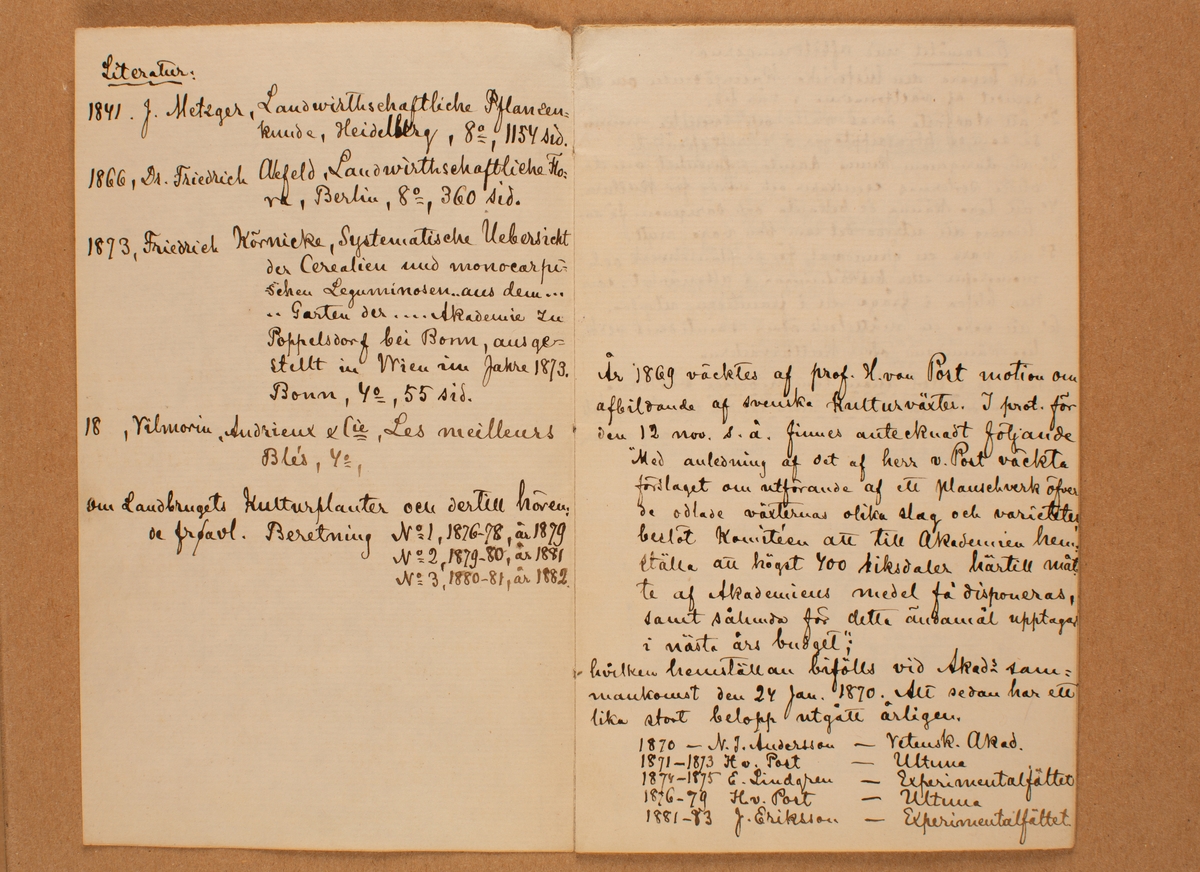 Literatur:
1841. J. Metzger, Landwirthschaftliche Pflanzen=
kunde, Heidelberg, 8o, 1154 sid.
1866, Dr. Friedrich Alefeld, Landwirthschaftliche Flo=
ra, Berlin, 8o, 360 sid.
1873, Friedrich Körnicke, Systematische Uebersicht
der Cerealien und monocarpi=
schen Leguminosen..aus dem...
.. Garten der .... Akademie zu
Poppelsdorf bei Bonn, ausge=
stellt in Wien im Jahre 1873.
Bonn, 4o, 55 sid.
18 , Vilmorin, Andrieux & Cie, Les meilleurs
Blés, 4o,
Om Landbrugets Kulturplanter och dertill hören=
de frøavl. Beretning No 1, 1876-78, år 1879
No 2, 1879-80, år 1881
No 3, 1880-81, år 1882
År 1869 väcktes af prof. H. von Post motion om
afbildande af svenska kulturväxter. I prot. för
den 12 nov. s. å. finnes antecknadt följande
"Med anledning af det af herr v. Post väckta
förslaget om utförande af ett planschverk öfver
de odlade växternas olika slag och varieteter
beslöt Komitéen att till Akademien hem=
ställa att högst 400 riksdaler härtill måt
te af Akademiens medel få disponeras,
samt sålunda för detta ändamål upptagas
i nästa års budget";
hvilken hemställan bifölls vid Akad:s sam=
mankomst den 24 Jan. 1870. Allt sedan har ett
lika stort belopp utgått årligen.
1870 — N. J. Andersson — Vetensk. Akad.
1871-1873 H v. Post — Ultuna
1874-1875 E. Lindgren — Experimentalfältet
1876-79 H. v. Post — Ultuna
1881-83 J. Eriksson — Experimentalfältet.